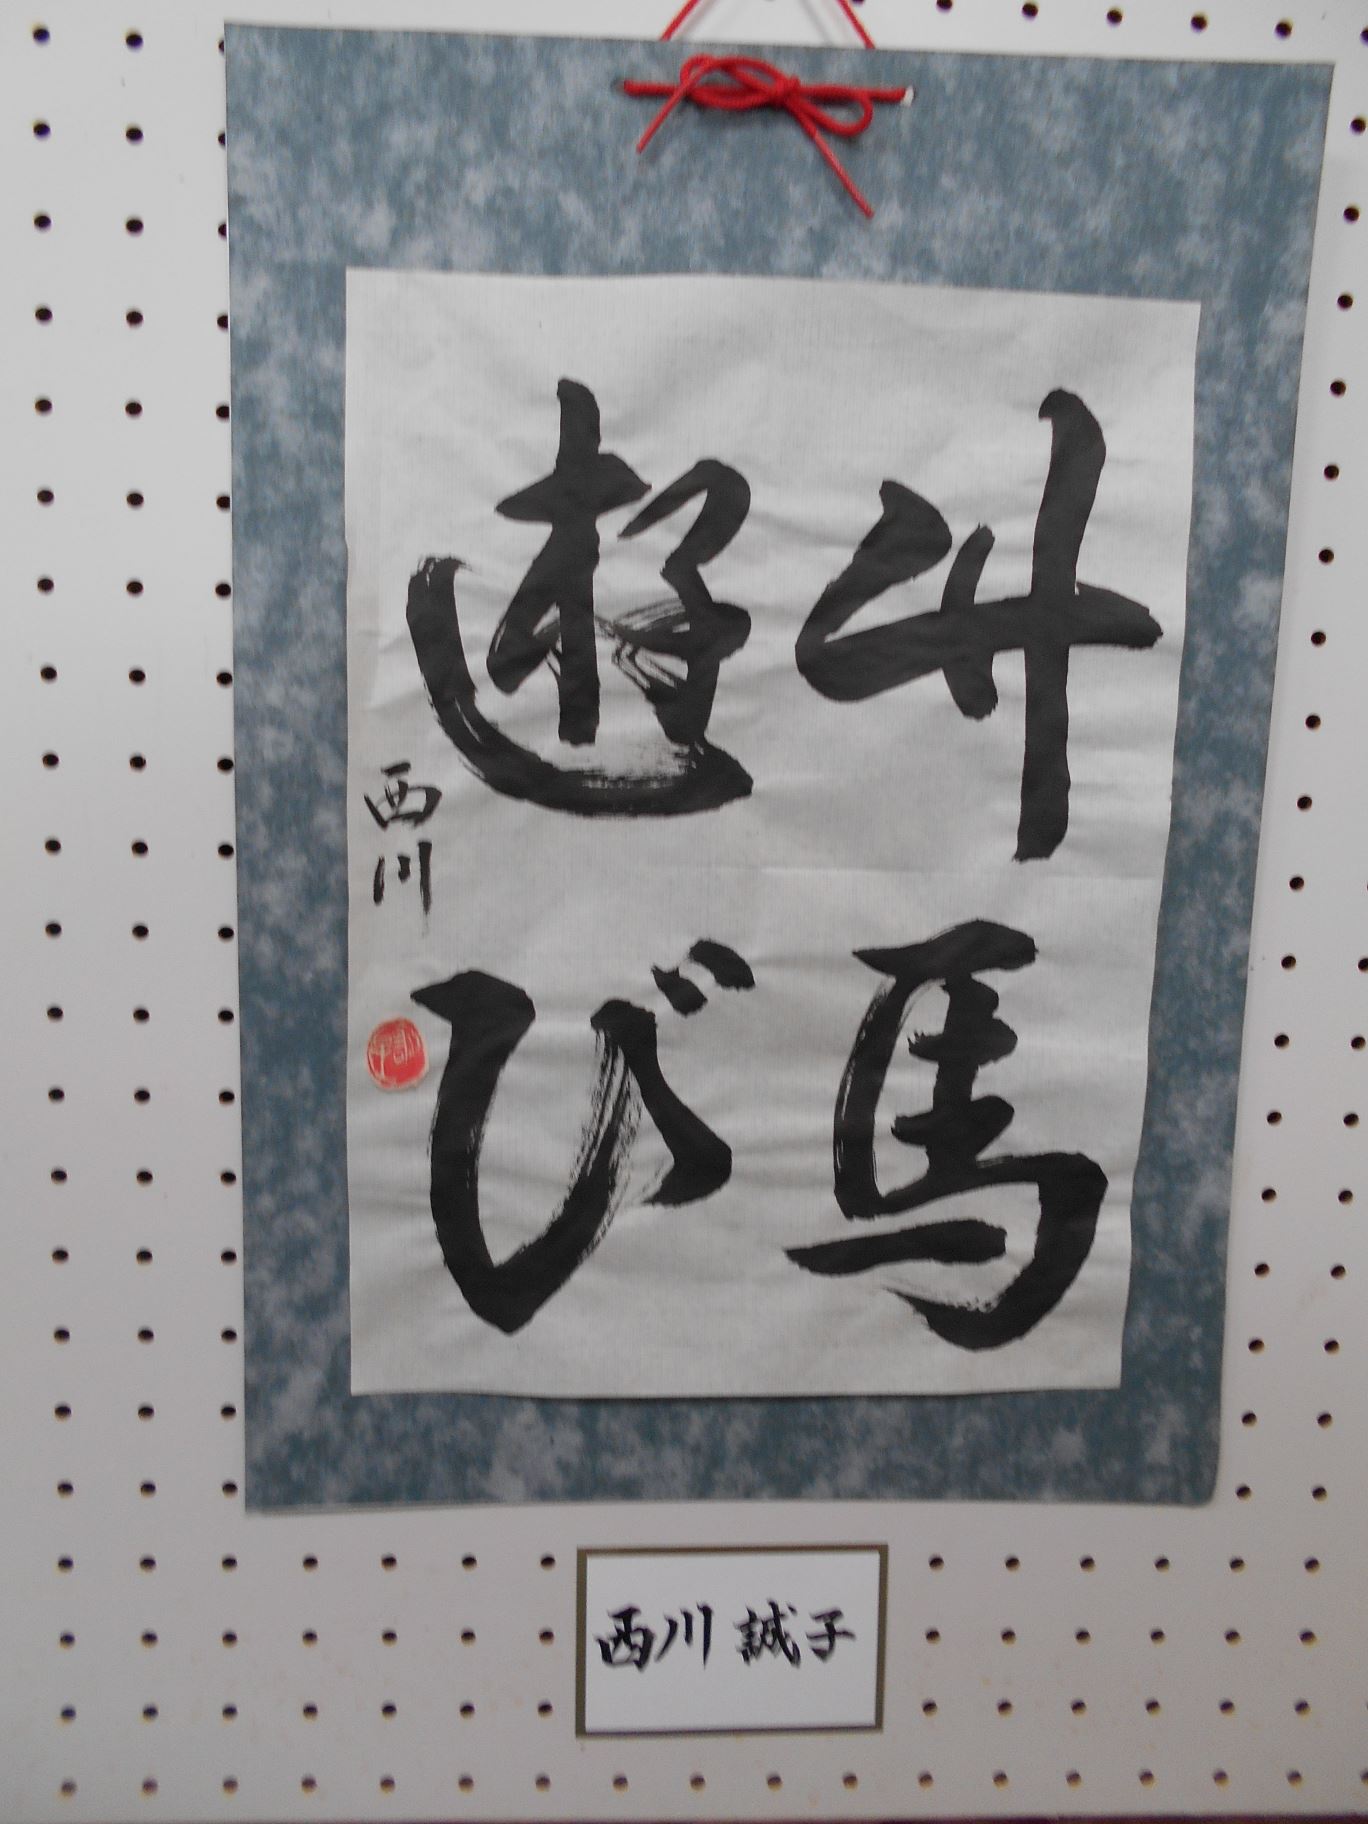 竹馬
遊び
西川
西川 誠子